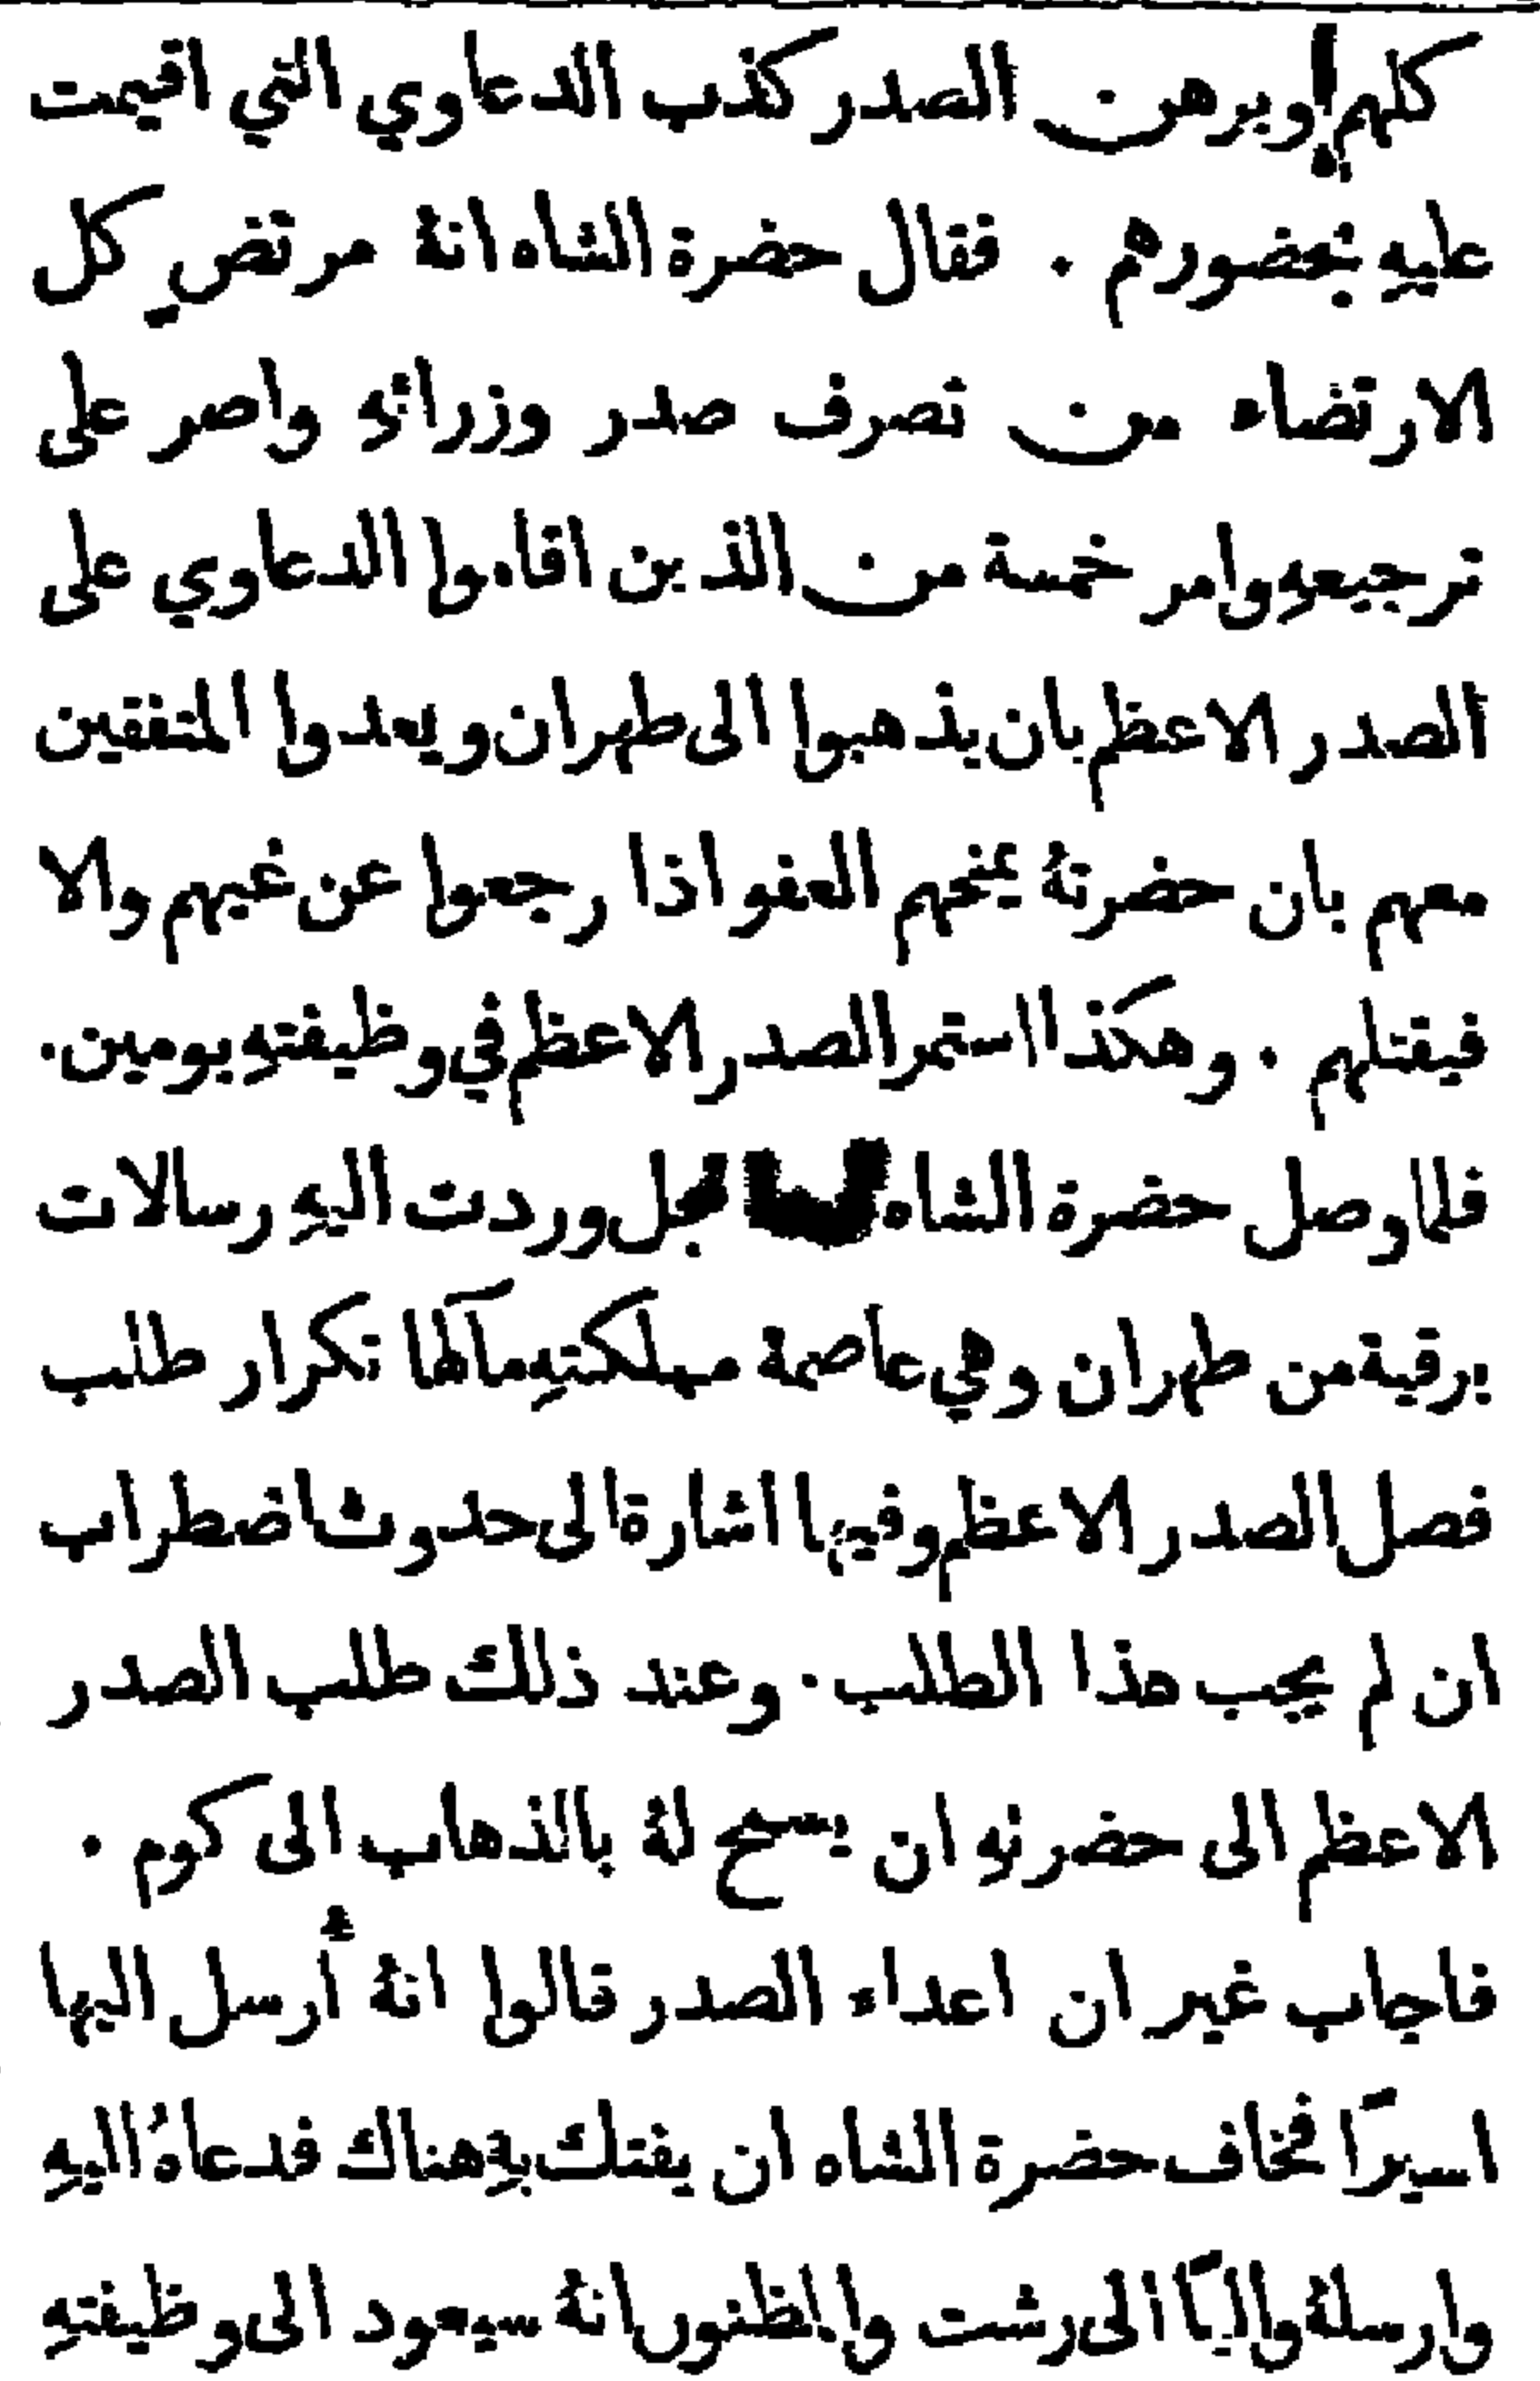 كلهم ويرهن الصدر كذب الدعاوي التي اقيمت
عليهِ بحضورهم . فقال حضرة الشاه انهُ مرتضٍ كل
الارتضاء من تصرف صدر وزرائهِ واصر على
ترجيعهِ وامر خمسة من الذين اقاموا الدعاوي على
الصدر الاعظم بان يذهبوا الى طهران ويعدوا المتفقين
معهم بان حضرتهُ يمنحهم العفو اذا رجعوا عن غيهم والا
فيقتلهم . وهكذا استمر الصدر الاعظم في وظيفتهِ يومين .
فلما وصل حضرة الشاه وردت اليهِ رسالات
برقية من طهران وهي عاصمة مملكتهِ مآلها تكرار طلب
فصل الصدر الاعظم وفيها اشارة الى حدوث اضطراب
ان لم يجب هذا الطلب . وعند ذلك طلب الصدر
الاعظم الى حضرتهِ ان يسمح لهُ بالذهاب الى كوم .
فاجاب غير ان اعداء الصدر قالوا انهُ أُرسل اليها
اسيرًا فخاف حضرة الشاه ان يفتك بهِ هناك فدعاهُ اليهِ
وارسلهُ واليًا الى رشت والمظنون انهُ سيعود الى وظيفتهِ